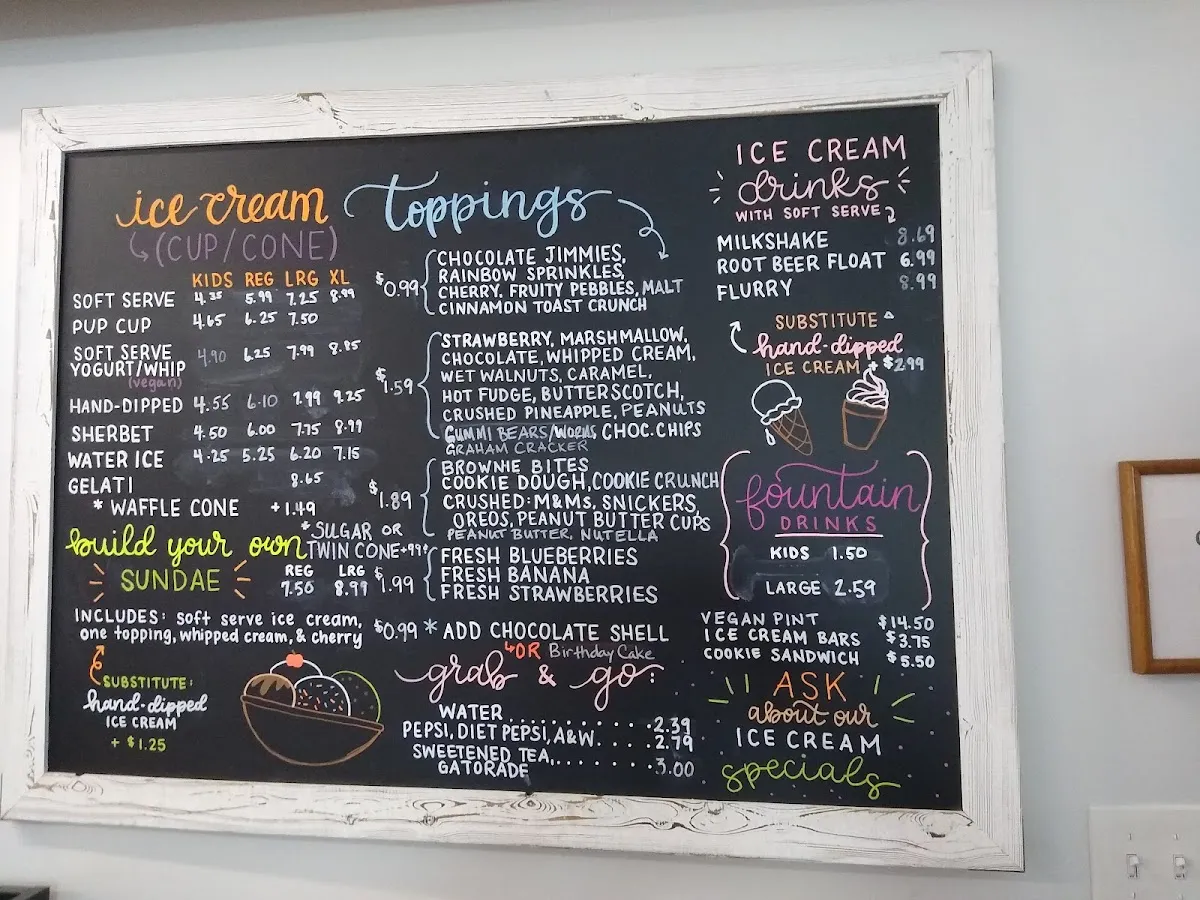 ice cream
(CUP/CONE)
KIDS REG LRG XL
SOFT SERVE 4.35 5.99 7.25 8.99
PUP CUP 4.65 6.25 7.50
SOFT SERVE 4.90 6.25 7.99 8.85
YOGURT/WHIP
(vegan)
HAND-DIPPED 4.55 6.10 7.99 9.25
SHERBET 4.50 6.00 7.75 8.99
WATER ICE 4.25 5.25 6.20 7.15
GELATI 8.65
* WAFFLE CONE +1.49
* SUGAR OR
TWIN CONE +99¢
build your own
SUNDAE
REG LRG
7.50 8.99
INCLUDES: soft serve ice cream,
one topping, whipped cream, & cherry
SUBSTITUTE:
hand-dipped
ICE CREAM
+ $1.25
toppings
$0.99 CHOCOLATE JIMMIES,
RAINBOW SPRINKLES,
CHERRY, FRUITY PEBBLES, MALT
CINNAMON TOAST CRUNCH
$1.59 STRAWBERRY, MARSHMALLOW,
CHOCOLATE, WHIPPED CREAM,
WET WALNUTS, CARAMEL,
HOT FUDGE, BUTTERSCOTCH,
CRUSHED PINEAPPLE, PEANUTS
GUMMI BEARS/WORMS, CHOC. CHIPS
GRAHAM CRACKER
$1.89 BROWNIE BITES
COOKIE DOUGH, COOKIE CRUNCH
CRUSHED: M&Ms, SNICKERS,
OREOS, PEANUT BUTTER CUPS
PEANUT BUTTER, NUTELLA
$1.99 FRESH BLUEBERRIES
FRESH BANANA
FRESH STRAWBERRIES
$0.99 * ADD CHOCOLATE SHELL
OR Birthday Cake
grab & go:
WATER..........2.39
PEPSI, DIET PEPSI, A&W.....2.79
SWEETENED TEA,.......3.00
GATORADE
ICE CREAM
drinks
WITH SOFT SERVE
MILKSHAKE 8.69
ROOT BEER FLOAT 6.99
FLURRY 8.99
SUBSTITUTE
hand-dipped
ICE CREAM + $2.99
fountain
DRINKS
KIDS 1.50
LARGE 2.59
VEGAN PINT $14.50
ICE CREAM BARS $3.75
COOKIE SANDWICH $5.50
ASK
about our
ICE CREAM
specials